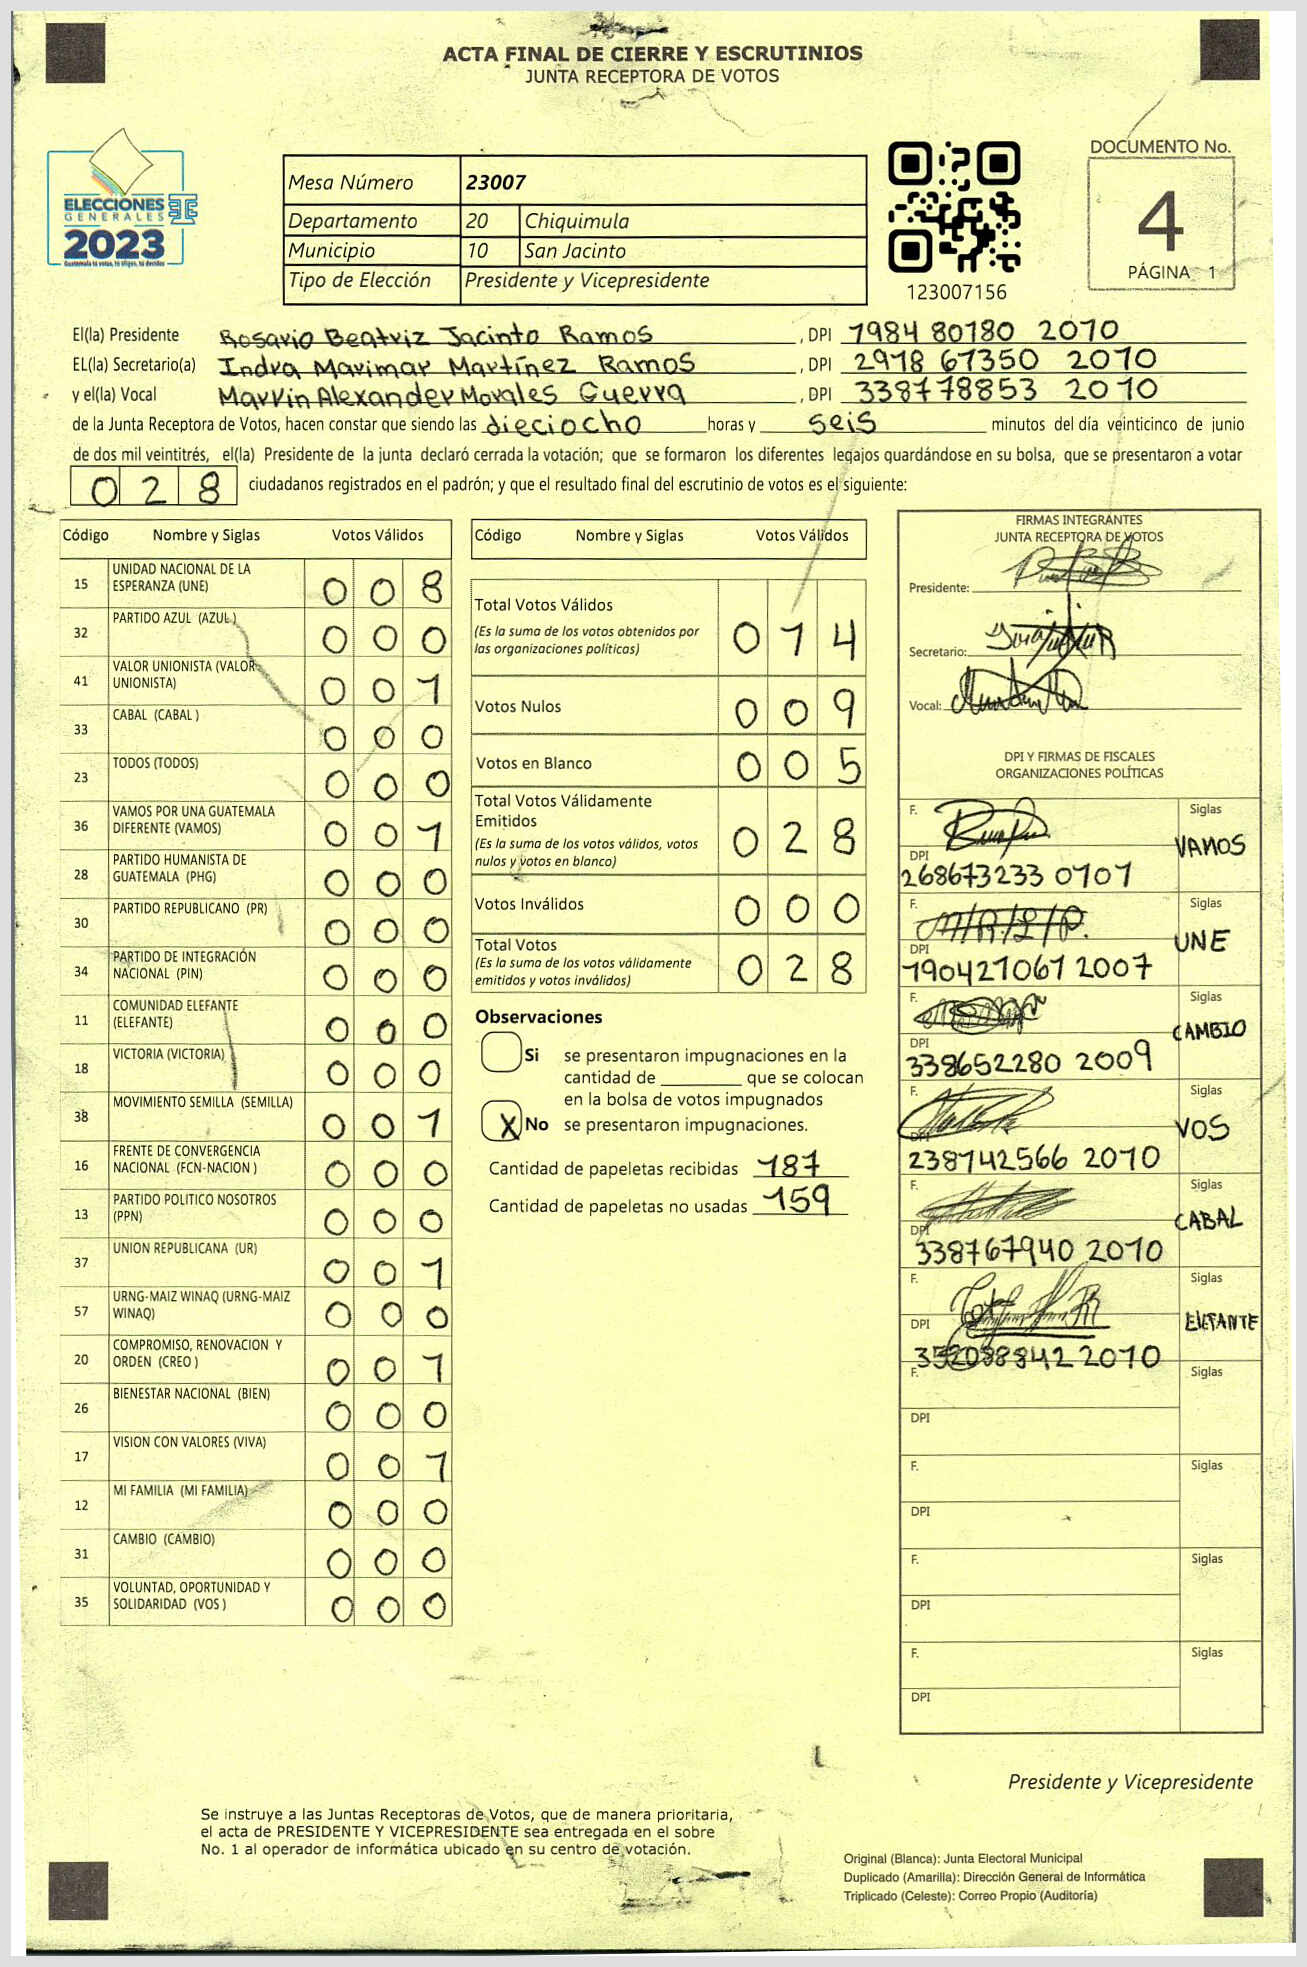 ACTA FINAL DE CIERRE Y ESCRUTINIOS
JUNTA RECEPTORA DE VOTOS
ELECCIONES
GENERALES
2023
Guatemala tú votas, tú eliges, tú decides
Mesa Número 23007
Departamento 20 Chiquimula
Municipio 10 San Jacinto
Tipo de Elección Presidente y Vicepresidente
123007156
DOCUMENTO No.
4
PÁGINA 1
El(la) Presidente Rosario Beatriz Jacinto Ramos , DPI 1984 80180 2010
EL(la) Secretario(a) Indra Marimar Martínez Ramos , DPI 2978 67350 2010
y el(la) Vocal Marvin Alexander Morales Guerra , DPI 338778853 2010
de la Junta Receptora de Votos, hacen constar que siendo las dieciocho horas y seis minutos del día veinticinco de junio
de dos mil veintitrés, el(la) Presidente de la junta declaró cerrada la votación; que se formaron los diferentes legajos guardándose en su bolsa, que se presentaron a votar
028 ciudadanos registrados en el padrón; y que el resultado final del escrutinio de votos es el siguiente:
Código Nombre y Siglas Votos Válidos
15 UNIDAD NACIONAL DE LA ESPERANZA (UNE) 008
32 PARTIDO AZUL (AZUL) 000
41 VALOR UNIONISTA (VALOR UNIONISTA) 001
33 CABAL (CABAL ) 000
23 TODOS (TODOS) 000
36 VAMOS POR UNA GUATEMALA DIFERENTE (VAMOS) 001
28 PARTIDO HUMANISTA DE GUATEMALA (PHG) 000
30 PARTIDO REPUBLICANO (PR) 000
34 PARTIDO DE INTEGRACIÓN NACIONAL (PIN) 000
11 COMUNIDAD ELEFANTE (ELEFANTE) 000
18 VICTORIA (VICTORIA) 000
38 MOVIMIENTO SEMILLA (SEMILLA) 001
16 FRENTE DE CONVERGENCIA NACIONAL (FCN-NACION ) 000
13 PARTIDO POLITICO NOSOTROS (PPN) 000
37 UNION REPUBLICANA (UR) 001
57 URNG-MAIZ WINAQ (URNG-MAIZ WINAQ) 000
20 COMPROMISO, RENOVACION Y ORDEN (CREO ) 001
26 BIENESTAR NACIONAL (BIEN) 000
17 VISION CON VALORES (VIVA) 001
12 MI FAMILIA (MI FAMILIA) 000
31 CAMBIO (CAMBIO) 000
35 VOLUNTAD, OPORTUNIDAD Y SOLIDARIDAD (VOS ) 000
Código Nombre y Siglas Votos Válidos
Total Votos Válidos 014
(Es la suma de los votos obtenidos por
las organizaciones políticas)
Votos Nulos 009
Votos en Blanco 005
Total Votos Válidamente
Emitidos 028
(Es la suma de los votos válidos, votos
nulos y votos en blanco)
Votos Inválidos 000
Total Votos 028
(Es la suma de los votos válidamente
emitidos y votos inválidos)
Observaciones
Si se presentaron impugnaciones en la
cantidad de ________ que se colocan
en la bolsa de votos impugnados
X No se presentaron impugnaciones.
Cantidad de papeletas recibidas 187
Cantidad de papeletas no usadas 159
FIRMAS INTEGRANTES
JUNTA RECEPTORA DE VOTOS
Presidente:
Secretario:
Vocal:
DPI Y FIRMAS DE FISCALES
ORGANIZACIONES POLÍTICAS
F. Siglas
VAMOS
DPI
268673233 0101
F. Siglas
UNE
DPI
190421061 2007
F. Siglas
CAMBIO
DPI
338652280 2009
F. Siglas
VOS
DPI
238142566 2010
F. Siglas
CABAL
DPI
338767940 2010
F. Siglas
ELEFANTE
DPI
352088842 2010
F. Siglas
DPI
F. Siglas
DPI
F. Siglas
DPI
F. Siglas
DPI
Presidente y Vicepresidente
Se instruye a las Juntas Receptoras de Votos, que de manera prioritaria,
el acta de PRESIDENTE Y VICEPRESIDENTE sea entregada en el sobre
No. 1 al operador de informática ubicado en su centro de votación.
Original (Blanca): Junta Electoral Municipal
Duplicado (Amarilla): Dirección General de Informática
Triplicado (Celeste): Correo Propio (Auditoría)